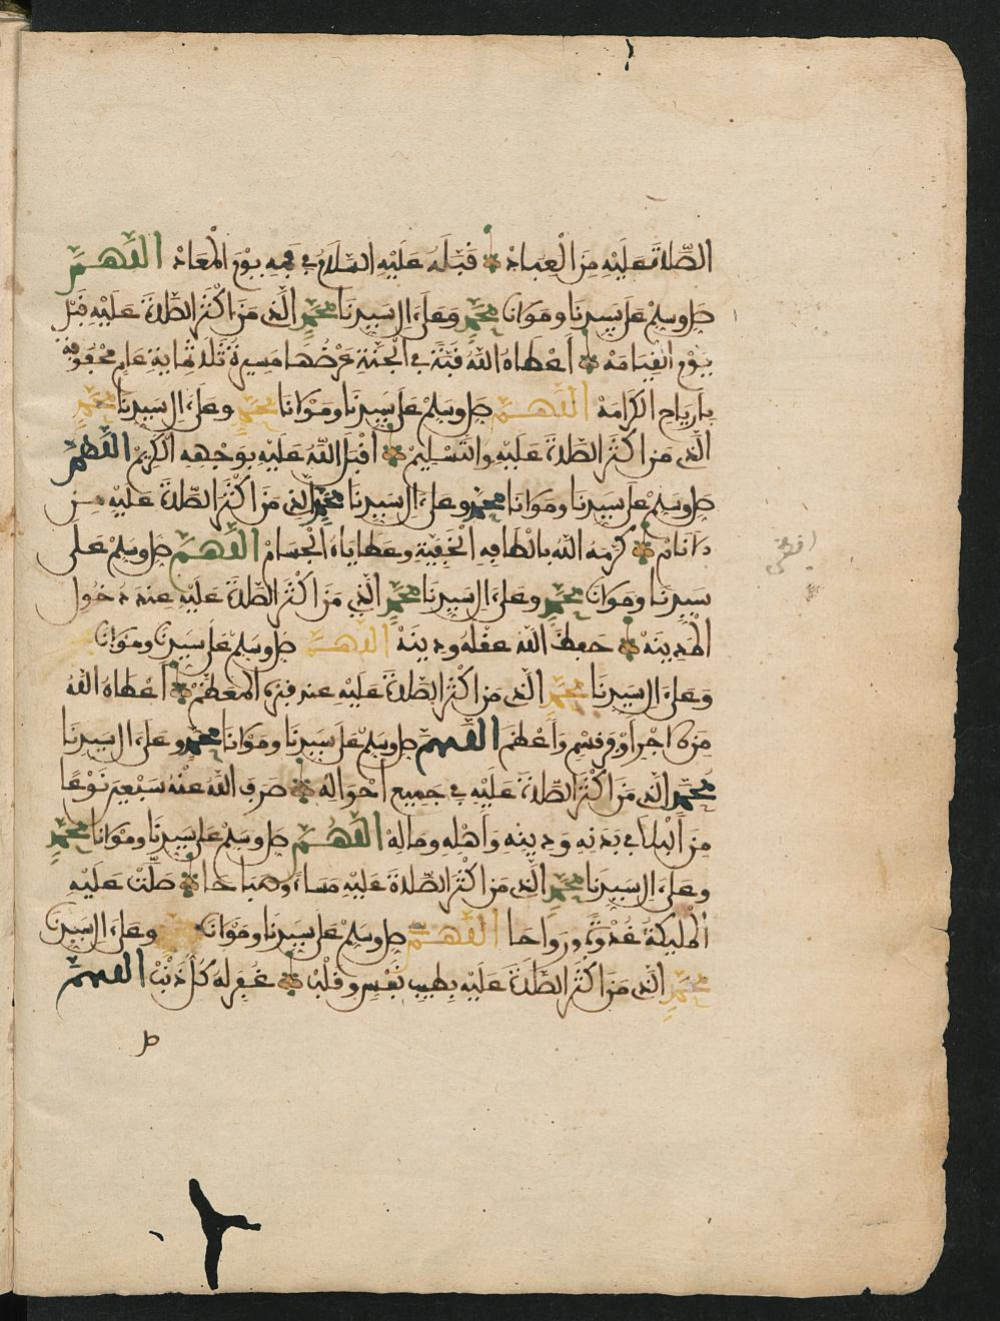 الصّلاة عليه من العباد قبّله عليه السّلام في فمه يوم المعاد اللّهمّ
صل وسلم على سيدنا ومولانا محمّد وعلى ال سيدنا محمّد الّذي من اكثر الصّلاة عليه قبل
يوم القيامة أعطاه الله قبّة في الجنّة عرضها مسيرة ثلاثماية عام محفوفة
بارياح الكرامة اللّهمّ صل وسلم على سيدنا ومولانا محمّد وعلى ال سيدنا محمّد
الّذي من اكثر الصّلاة عليه والتسليم اقبل الله عليه بوجهه الكريم اللّهمّ
صل وسلم على سيدنا ومولانا محمّد وعلى ال سيدنا محمّد الّذي من اكثر الصّلاة عليه من
كرمه الله بالطافه الخفيّة وعطاياه الجسام اللّهمّ صل وسلم على
سيدنا ومولانا محمّد وعلى ال سيدنا محمّد الّذي من اكثر الصّلاة عليه عند دخول
المدينة حفظ الله عقله ودينه اللّهمّ صل وسلم على سيدنا ومولانا
وعلى ال سيدنا محمّد الّذي من اكثر الصّلاة عليه عند قبره المعظّم أعطاه الله
من اجرا وأعظم اللّهمّ صل وسلم على سيدنا ومولانا محمّد وعلى ال سيدنا
محمّد الّذي من اكثر الصّلاة عليه في جميع احواله صرف الله عنه سبعين نوعا
من البلاء في بدنه ودينه وأهله وماله اللّهمّ صل وسلم على سيدنا ومولانا محمّد
وعلى ال سيدنا محمّد الّذي من اكثر الصّلاة عليه مساء وصباحا صلّت عليه
الملايكة غدوّا ورواحا اللّهمّ صل وسلم على سيدنا ومولانا وعلى ال سيدنا
محمّد الّذي من اكثر الصّلاة عليه بطيب نفس وقلب غفر له كل ذنب اللّهمّ
صل